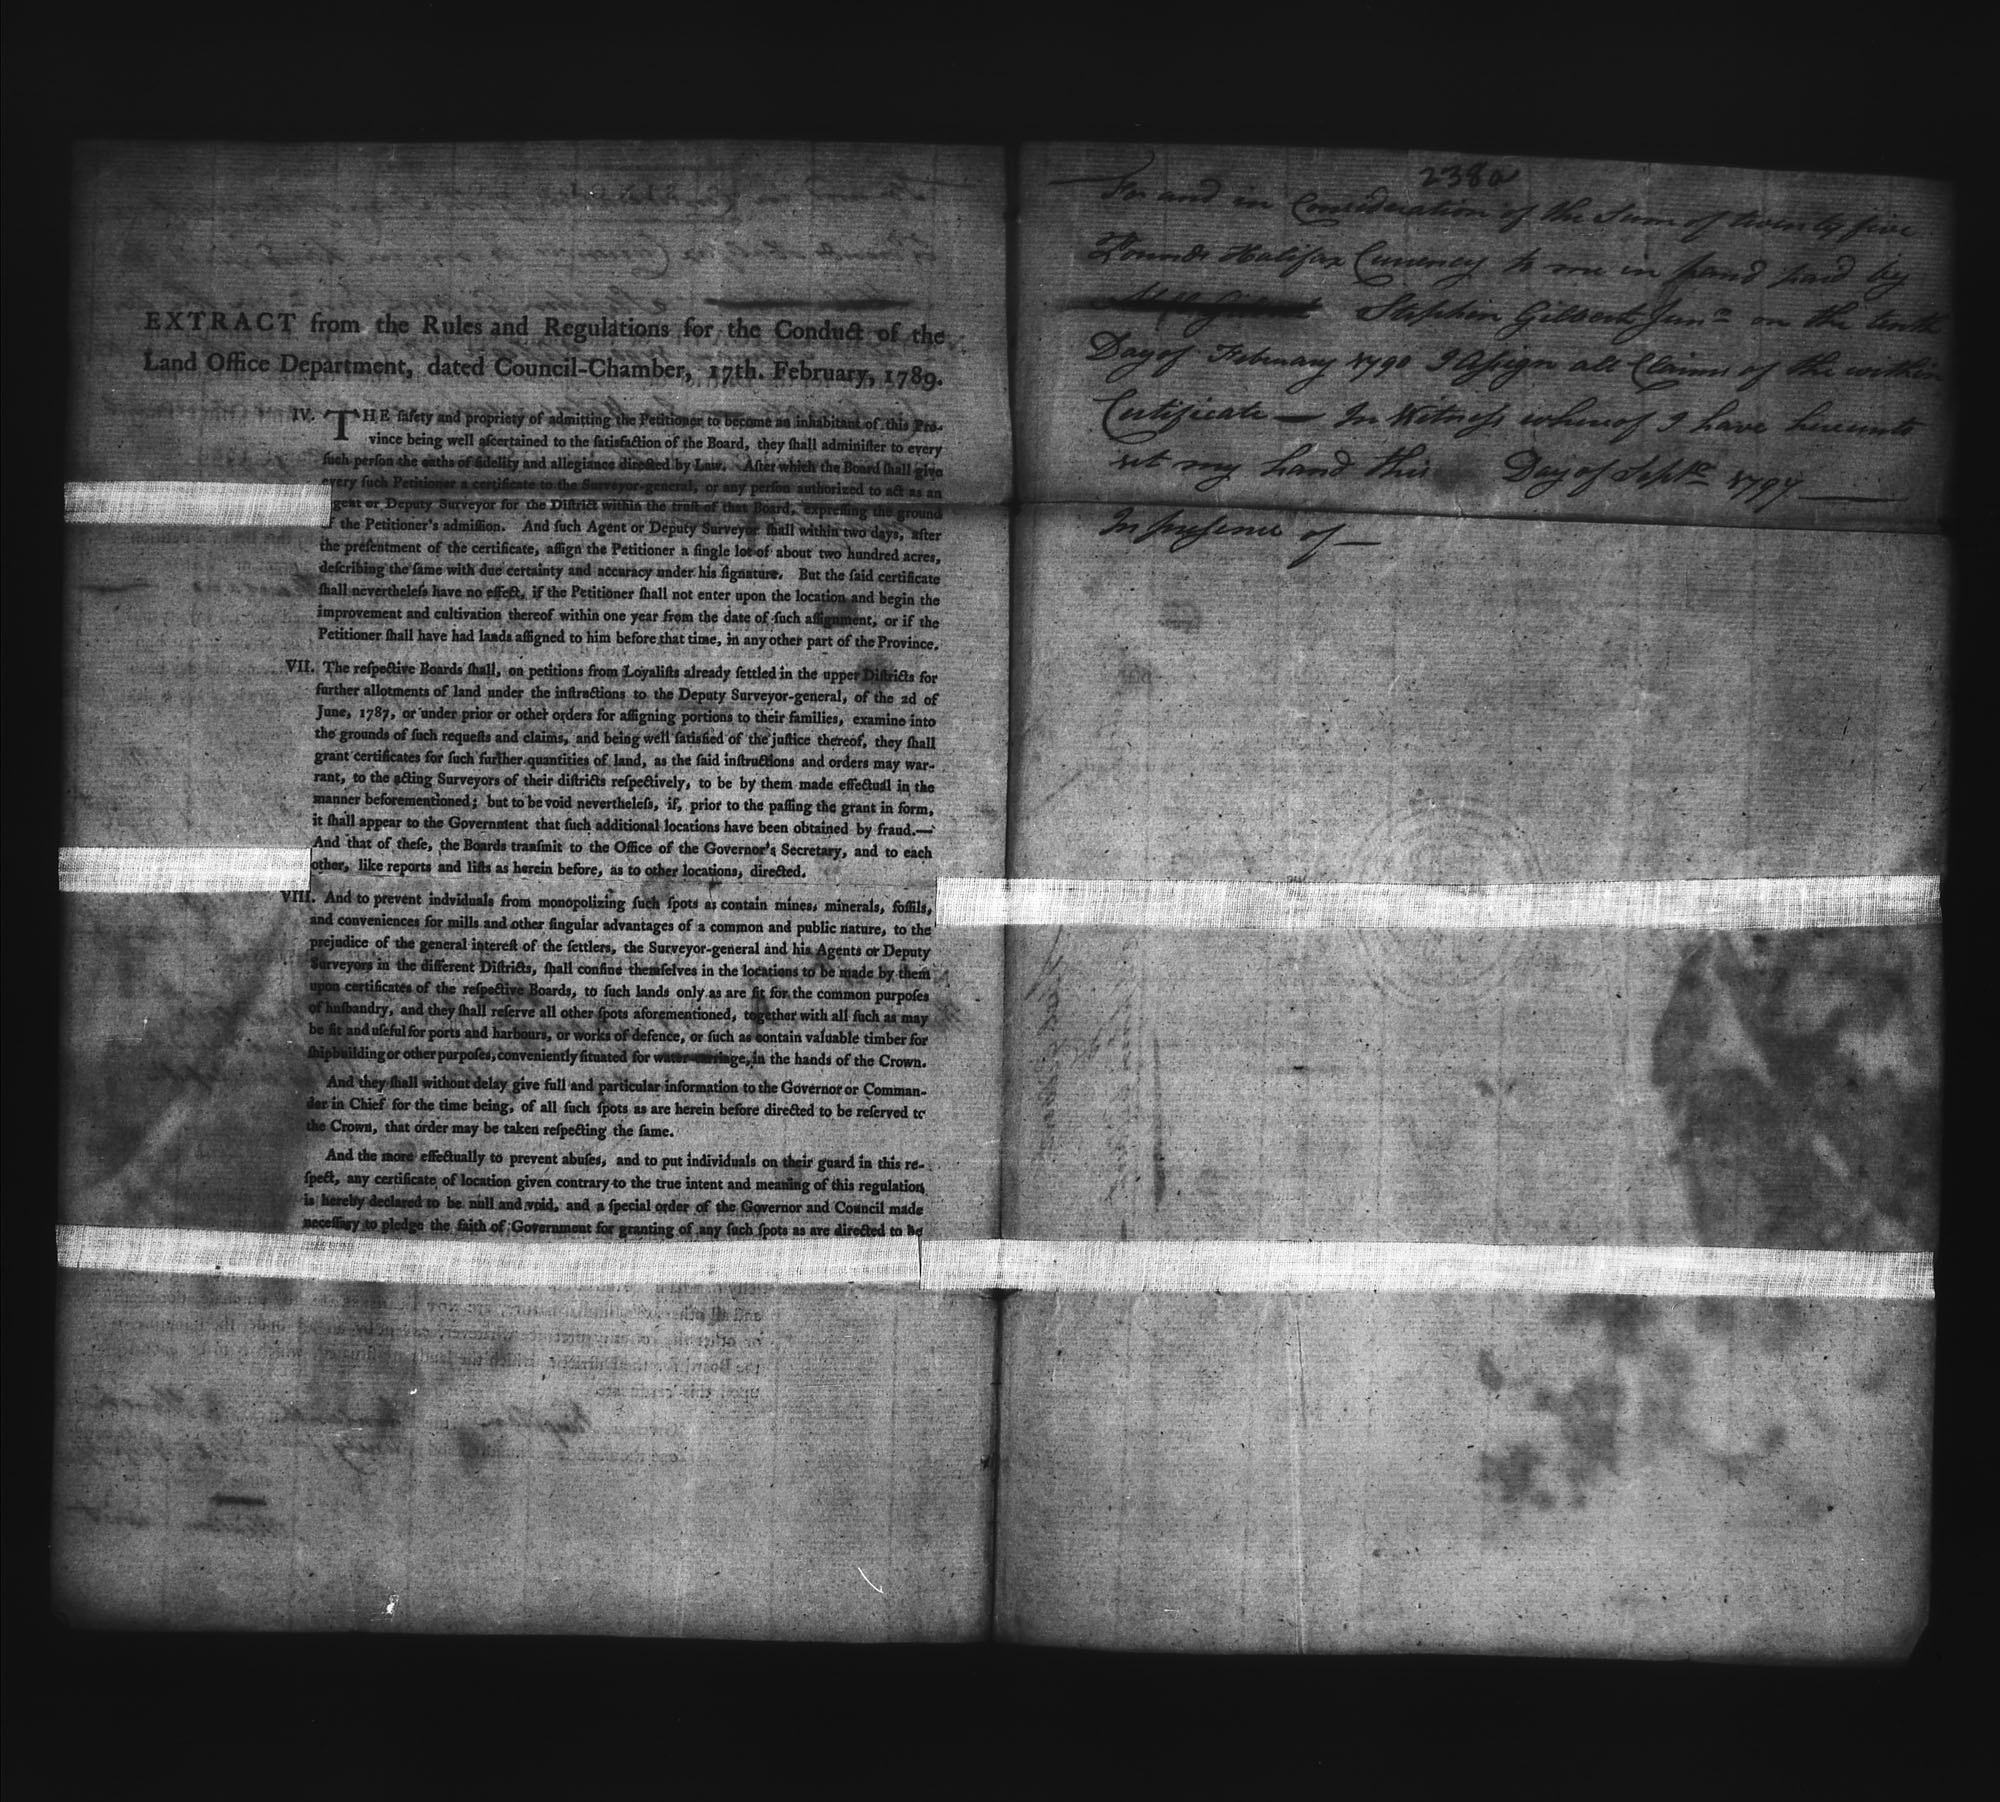 EXTRACT from the Rules and Regulations for the Conduct of the
Land Office Department, dated Council-Chamber, 17th. February, 1789.
IV. THE ſafety and propriety of admitting the Petitioner to become an inhabitant of this Pro-
vince being well aſcertained to the ſatisfaction of the Board, they ſhall adminiſter to every
ſuch perſon the oaths of fidelity and allegiance directed by Law. After which the Board ſhall give
every ſuch Petitioner a certificate to the Surveyor-general, or any perſon authorized to act as an
Agent or Deputy Surveyor for the Diſtrict within the truſt of that Board, expreſſing the ground
of the Petitioner's admiſſion. And ſuch Agent or Deputy Surveyor ſhall within two days, after
the preſentment of the certificate, aſſign the Petitioner a ſingle lot of about two hundred acres,
deſcribing the ſame with due certainty and accuracy under his ſignature. But the ſaid certificate
ſhall nevertheleſs have no effect, if the Petitioner ſhall not enter upon the location and begin the
improvement and cultivation thereof within one year from the date of ſuch aſſignment, or if the
Petitioner ſhall have had lands aſſigned to him before that time, in any other part of the Province.
VII. The reſpective Boards ſhall, on petitions from Loyaliſts already ſettled in the upper Diſtricts for
further allotments of land under the inſtructions to the Deputy Surveyor-general, of the 2d of
June, 1787, or under prior or other orders for aſſigning portions to their families, examine into
the grounds of ſuch requeſts and claims, and being well ſatisfied of the juſtice thereof, they ſhall
grant certificates for ſuch further quantities of land, as the ſaid inſtructions and orders may war-
rant, to the acting Surveyors of their diſtricts reſpectively, to be by them made effectual in the
manner beforementioned; but to be void nevertheleſs, if, prior to the paſſing the grant in form,
it ſhall appear to the Government that ſuch additional locations have been obtained by fraud.—
And that of theſe, the Boards tranſmit to the Office of the Governor's Secretary, and to each
other, like reports and liſts as herein before, as to other locations, directed.
VIII. And to prevent indviduals from monopolizing ſuch ſpots as contain mines, minerals, foſſils,
and conveniences for mills and other ſingular advantages of a common and public nature, to the
prejudice of the general intereſt of the ſettlers, the Surveyor-general and his Agents or Deputy
Surveyors in the different Diſtricts, ſhall confine themſelves in the locations to be made by them
upon certificates of the reſpective Boards, to ſuch lands only as are fit for the common purpoſes
of huſbandry, and they ſhall reſerve all other ſpots aforementioned, together with all ſuch as may
be fit and uſeful for ports and harbours, or works of defence, or ſuch as contain valuable timber for
ſhipbuilding or other purpoſes, conveniently ſituated for water-carriage, in the hands of the Crown.
And they ſhall without delay give full and particular information to the Governor or Comman-
der in Chief for the time being, of all ſuch ſpots as are herein before directed to be reſerved to
the Crown, that order may be taken reſpecting the ſame.
And the more effectually to prevent abuſes, and to put individuals on their guard in this re-
ſpect, any certificate of location given contrary to the true intent and meaning of this regulation
is hereby declared to be null and void, and a ſpecial order of the Governor and Council made
neceſſary to pledge the faith of Government for granting of any ſuch ſpots as are directed to be
238a
For and in Consideration of the Sum of twenty five
Pounds Halifax Currency to me in hand paid by
Stephen Gilbert Junr on the tenth
Day of February 1790 I Aſsign all Claims of the within
Certificate — In Witneſs whereof I have hereunto
set my hand this Day of Septr 1797
In presence of —